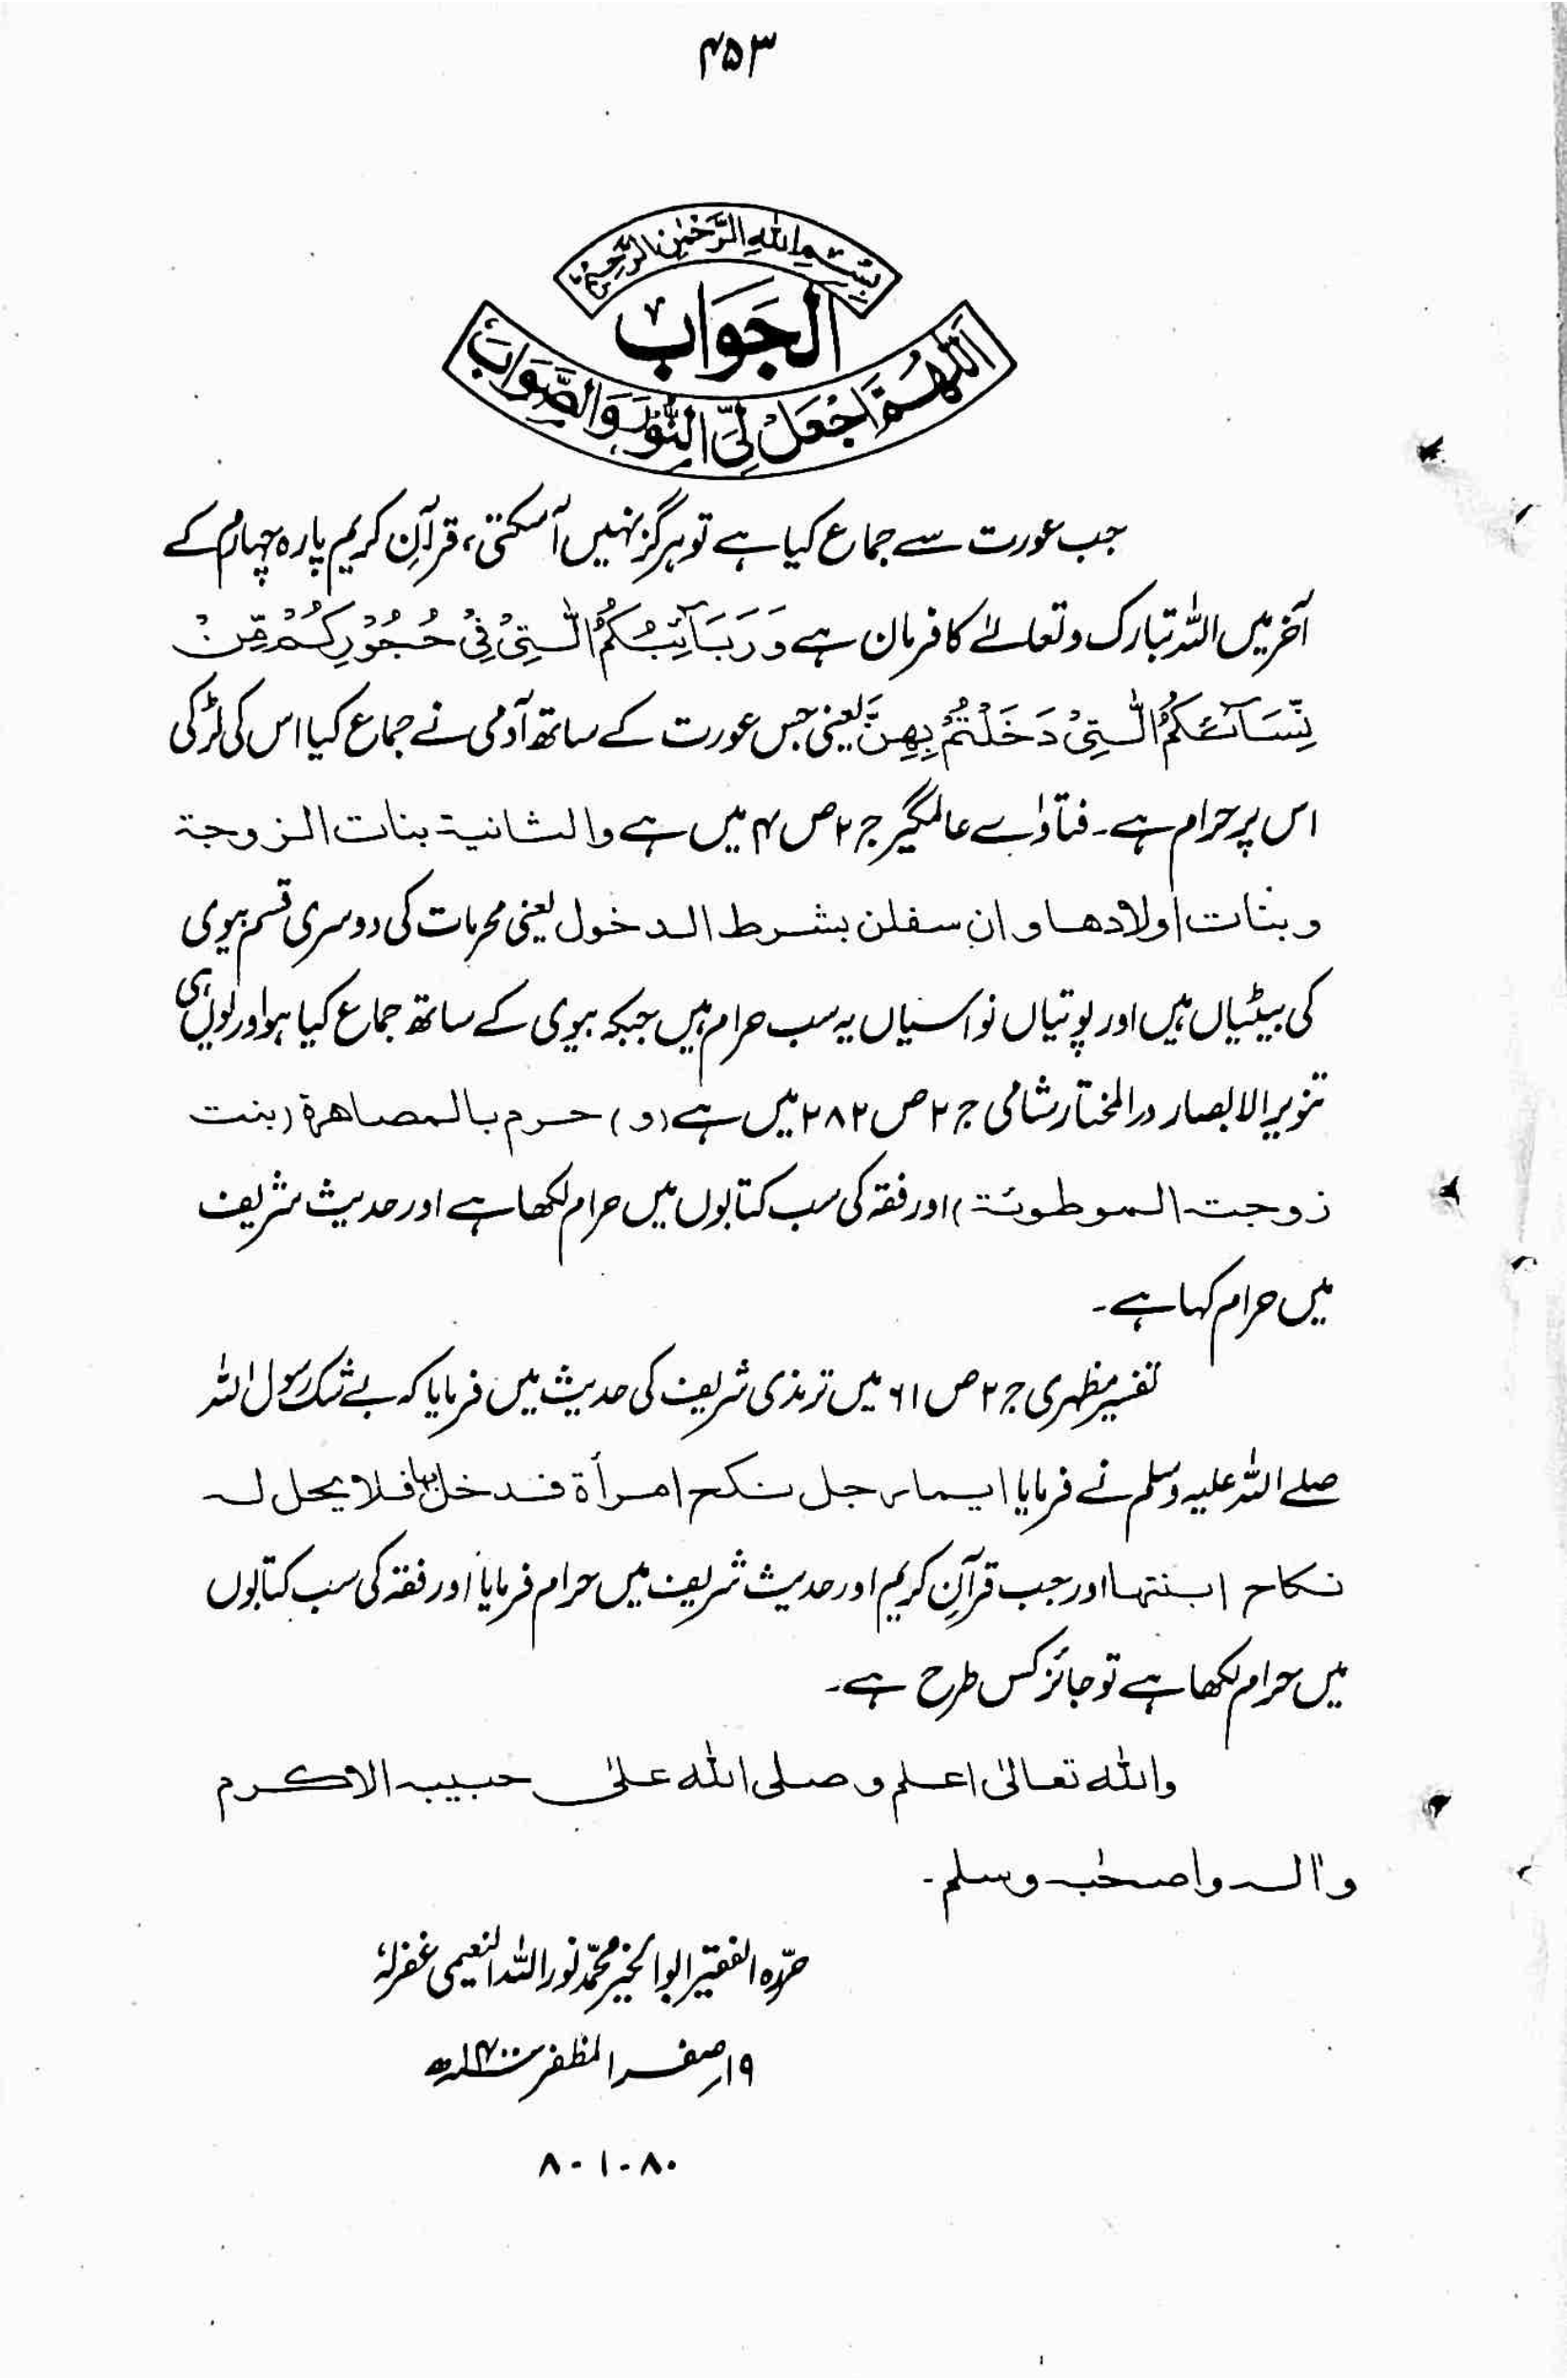 ۴۵۳
بِسْمِ اللّٰهِ الرَّحْمٰنِ الرَّحِيْمِ
الجَوَاب
اَللّٰهُمَّ اجْعَلْ لِّیَ النُّوْرَ وَالصَّوَابَ
جب عورت سے جماع کیا ہے تو ہرگز نہیں آسکتی، قرآنِ کریم پارہ چہارم کے
آخر میں اللہ تبارک وتعالےٰ کا فرمان ہے وَرَبَآئِبُكُمُ الّٰتِیْ فِیْ حُجُوْرِكُمْ مِّنْ
نِّسَآئِكُمُ الّٰتِیْ دَخَلْتُمْ بِهِنَّ یعنی جس عورت کے ساتھ آدمی نے جماع کیا اس کی لڑکی
اس پر حرام ہے۔ فتاوٰے عالمگیر ج ۲ ص ۴ میں ہے والثانیۃ بنات الزوجۃ
وبنات اولادھا وان سفلن بشرط الدخول یعنی محرمات کی دوسری قسم بیوی
کی بیٹیاں ہیں اور پوتیاں نواسیاں یہ سب حرام ہیں جبکہ بیوی کے ساتھ جماع کیا ہو اور یوں ہی
تنویر الابصار در المختار شامی ج ۲ ص ۲۸۲ میں ہے (و) حرم بالمصاھرۃ (بنت
زوجتہ الموطوئۃ) اور فقہ کی سب کتابوں میں حرام لکھا ہے اور حدیث شریف
میں حرام کہا ہے۔
تفسیر مظہری ج ۲ ص ۶۱ میں ترمذی شریف کی حدیث میں فرمایا کہ بے شک رسول اللہ
صلے اللہ علیہ وسلم نے فرمایا ایما رجل نکح امرأۃ فدخل بھا فلا یحل لہ
نکاح ابنتھا اور جب قرآنِ کریم اور حدیث شریف میں حرام فرمایا اور فقہ کی سب کتابوں
میں حرام لکھا ہے تو جائز کس طرح ہے۔
واللہ تعالیٰ اعلم وصلی اللہ علیٰ حبیبہ الاکرم
واٰلہ واصحٰبہ وسلم۔
حرّرہ الفقیر ابوالخیر محمّد نور اللہ النعیمی غفرلہٗ
۱۹ صفر المظفر ۱۴۰۰ھ
۸-۱-۸۰